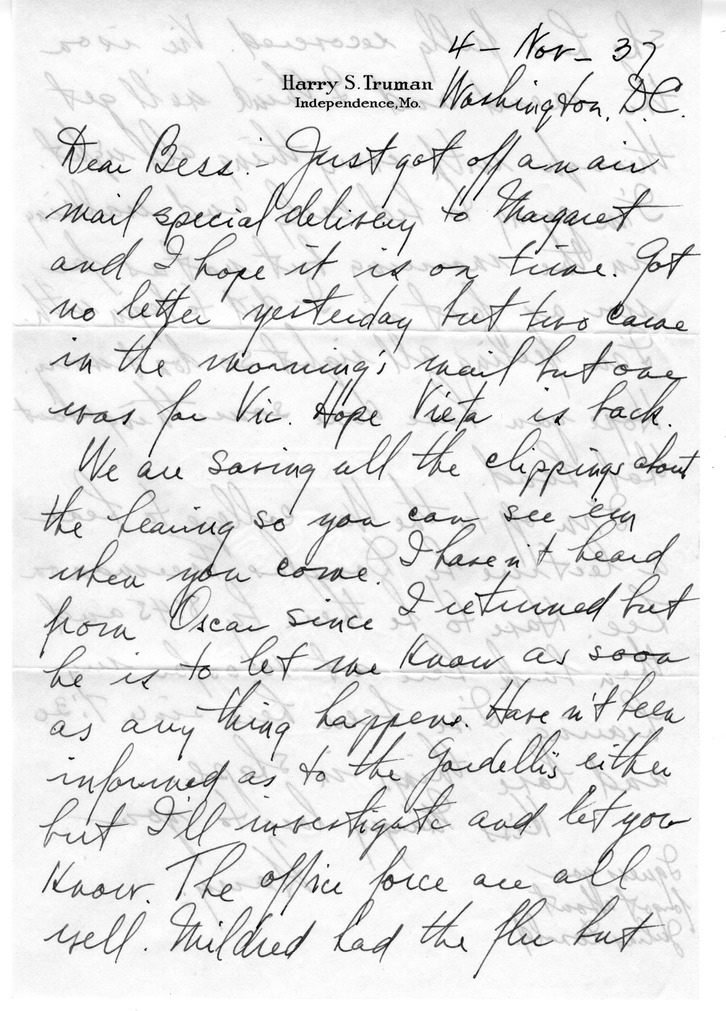 4 - Nov - 37
Harry S. Truman
Independence, Mo.
Washington, D.C.
Dear Bess:- Just got off an air
mail special delivery to Margaret
and I hope it is on time. Got
no letter yesterday but two came
in the morning's mail but one
was for Vic. Hope Vieta is back.
We are saving all the clippings about
the hearing so you can see em
when you come. I haven't heard
from Oscar since I returned but
he is to let me know as soon
as any thing happens. Haven't been
informed as to the either
but I'll investigate and let you
know. The office force are all
well. Mildred had the flu but